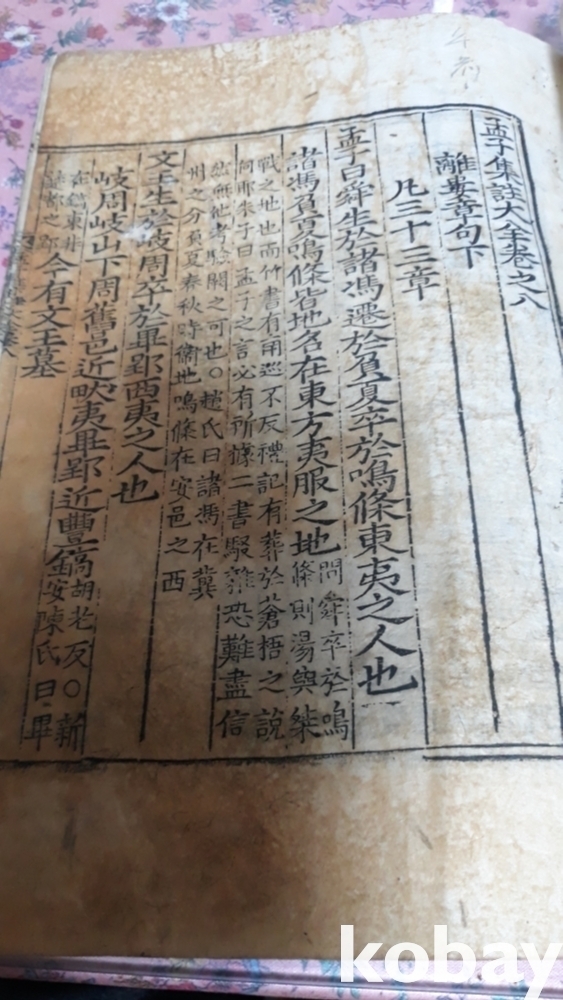 孟子集註大全卷之八
離婁章句下
凡三十三章
孟子曰舜生於諸馮遷於負夏卒於鳴條東夷之人也
諸馮負夏鳴條皆地名在東方夷服之地
問舜卒於鳴
條則湯與桀
戰之地也而竹書有南巡不反禮記有葬於蒼梧之說
何耶朱子曰孟子之言必有所據二書駁雜恐難盡信
然無他考驗闕之可也○趙氏曰諸馮在冀
州之分負夏春秋時衛地鳴條在安邑之西
文王生於岐周卒於畢郢西夷之人也
岐周岐山下周舊邑近畎夷畢郢近豐鎬
胡老反○新
安陳氏曰畢
在鎬東
之郢
今有文王墓
kobay